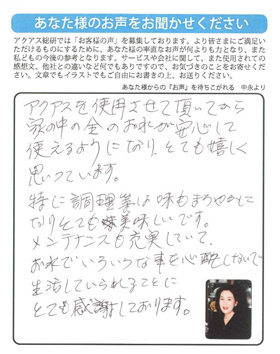 あなた様のお声をお聞かせください
アクアス総研では「お客様の声」を募集しております。より皆さまにご満足い
ただけるものにするために、あなた様の率直なお声が何よりも力となり、また
私どもの今後の参考となります。サービスや会社に関して、また使用されての
感想文、他社との違いなど何でもありですので、お気づきのことをお寄せくだ
さい。文章でもイラストでもご自由にお書きの上、お送りください。
あなた様からの『お声』を待ちこがれる 中永より
アクアスを使用させて頂いてから
家の中の全のお水が安心して
使えるようになり、とても嬉しく
思っています。
特に調理等は味もまろやかに
なりとても美味しいです。
メンテナンスも充実していて、
お水でいろいろな事を心配しないで
生活していられることに
とても感謝しております。